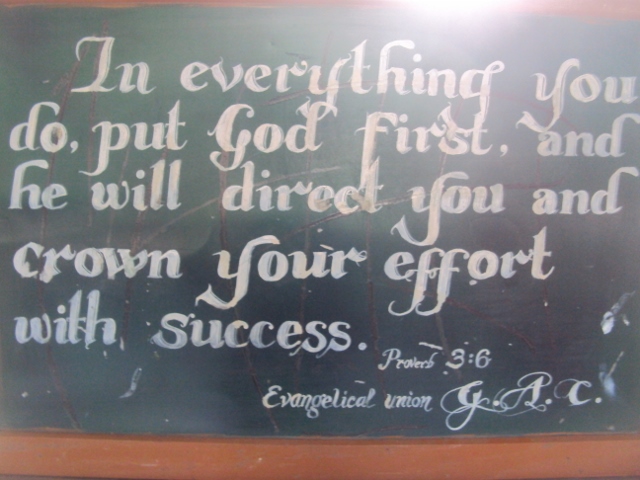 In everything you
do, put God first, and
he will direct you and
crown your effort
with success.
Proverb 3:6
Evangelical union G.A.C.